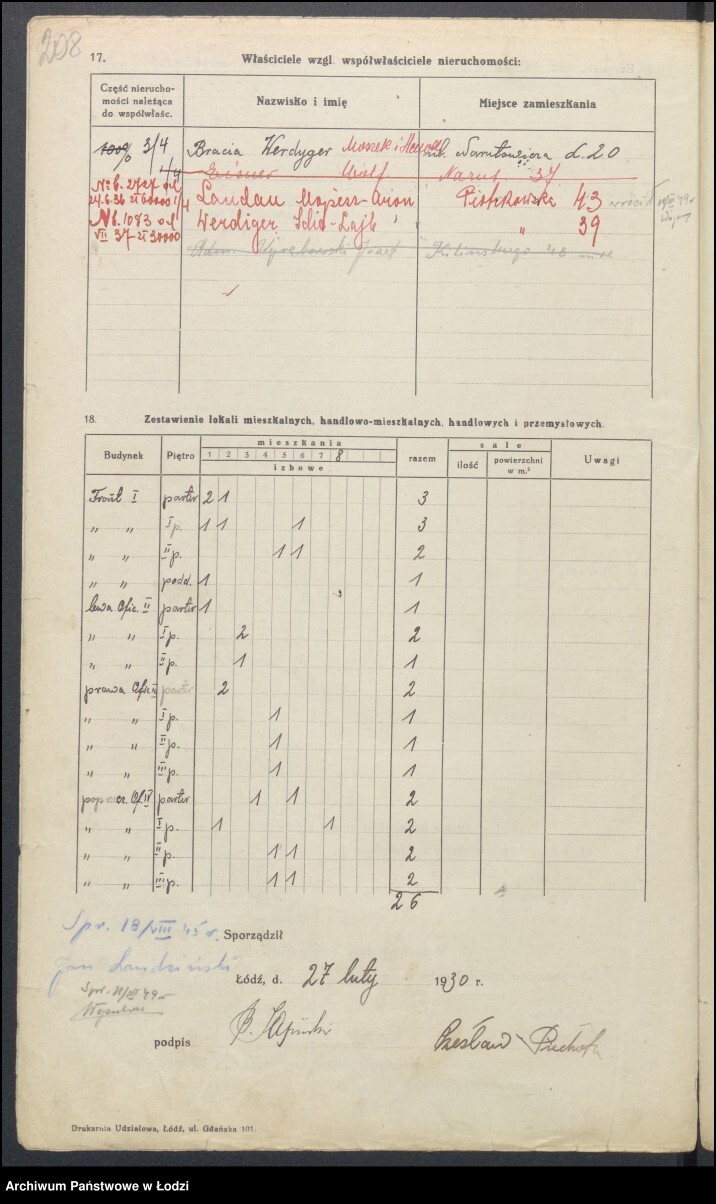 208
17. Właściciele wzgl. współwłaściciele nieruchomości:
Część nierucho-
mości należąca
do współwłaśc.
Nazwisko i imię
Miejsce zamieszkania
100% 3/4 Bracia Werdyger Moszek i ul. Narutowicza d. 20
1/4 Wolf Narut. 37
№ 6. 2727 od
24.6.36 zł 60000 1/4 Landau Mojżesz-Aron Piotrkowska 43
№ 6. 1083 od Werdiger 39
VII 37 zł 30000
Kilińskiego 48
18. Zestawienie lokali mieszkalnych, handlowo-mieszkalnych, handlowych i przemysłowych.
Budynek Piętro mieszkania razem sale Uwagi
1 2 3 4 5 6 7 8
izbowe
ilość powierzchni w m.²
Front I parter 2 1 3
„ „ I p. 1 1 1 3
„ „ II p. 1 1 2
„ „ podd. 1 1
lewa Ofic. II parter 1 1
„ „ I p. 2 2
„ „ II p. 1 1
prawa Ofic. parter 2 2
„ „ I p. 1 1
„ „ II p. 1 1
„ „ III p. 1 1
poprzecz. Of. IV parter 1 1 2
„ „ I p. 1 1 2
„ „ II p. 1 1 2
„ „ III p. 1 1 2
26
Spr. 18/VIII 45 r. Sporządził
Jan
Łódź, d. 27 luty 1930 r.
podpis
Czesław
Drukarnia Udziałowa, Łódź, ul. Gdańska 101.
Archiwum Państwowe w Łodzi